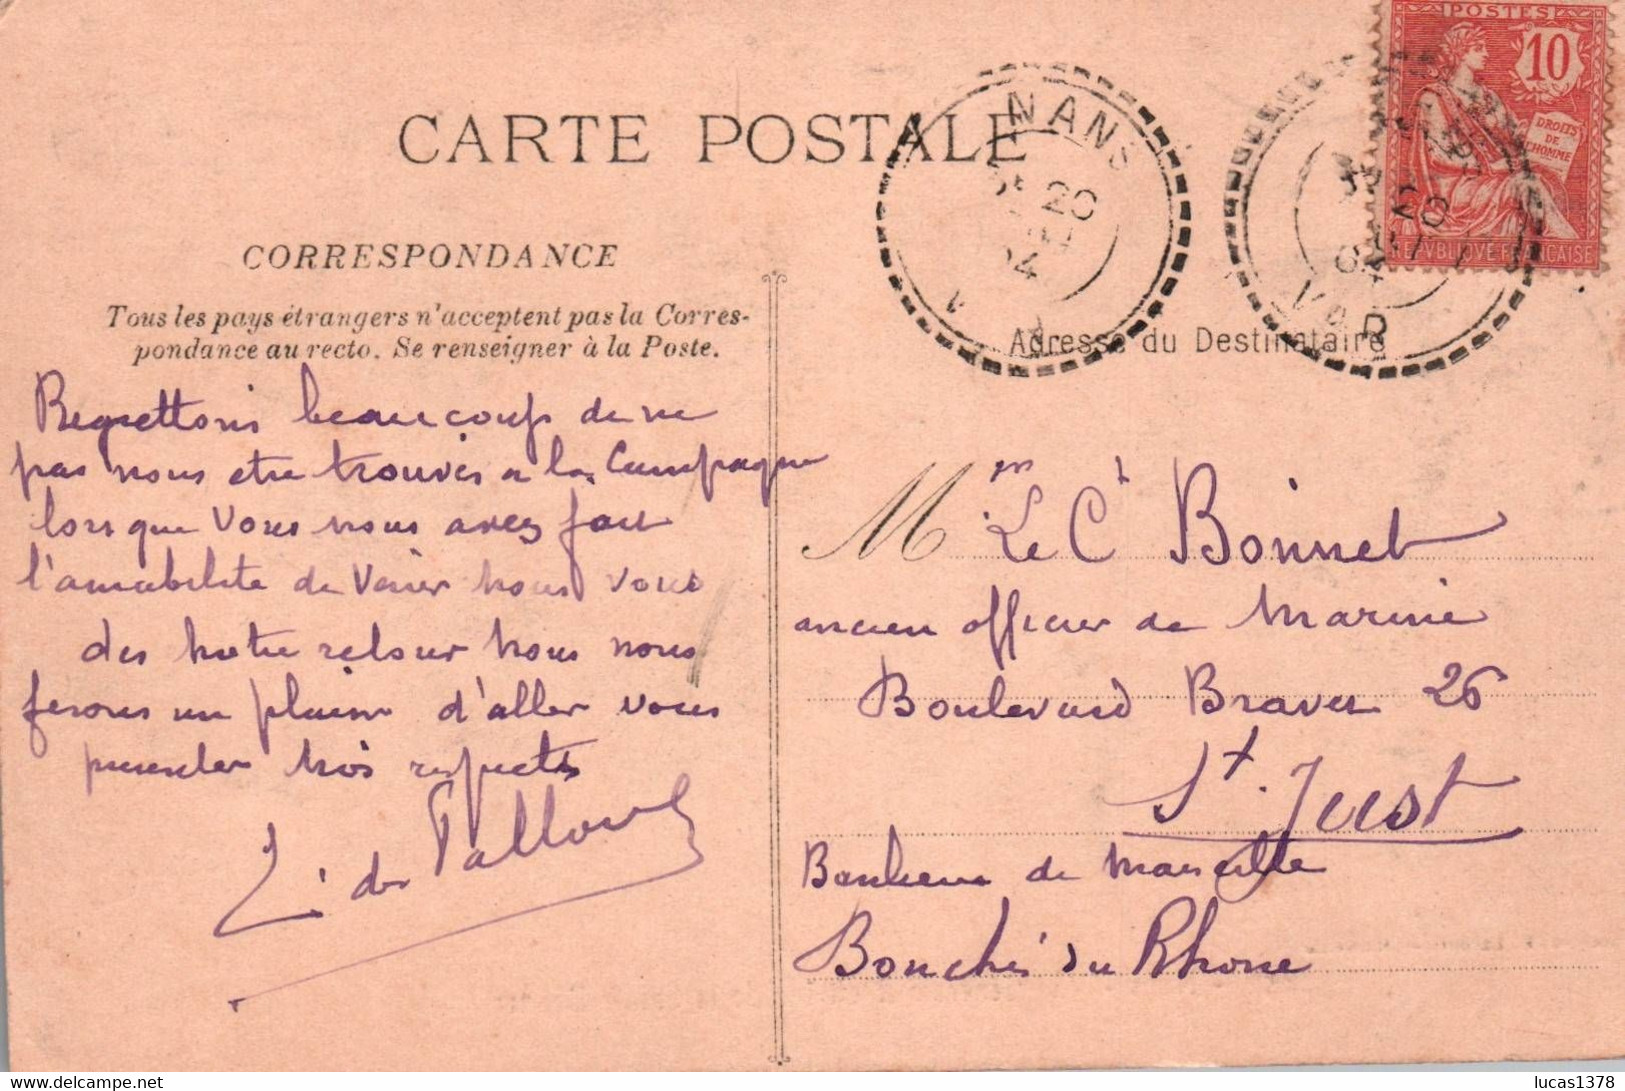 CARTE POSTALE
CORRESPONDANCE
Tous les pays étrangers n'acceptent pas la Corres-
pondance au recto. Se renseigner à la Poste.
Regrettons beaucoup de ne
pas nous etre trouvés a la Campagne
lorsque Vous nous avez fait
l'amabilite de Venir nous voir
des notre retour nous nous
ferons un plaisir d'aller vous
presenter nos respects
NANS
20
04
VAR
POSTES
10
DROITS
DE
L'HOMME
REPVBLIQVE FRANÇAISE
Adresse du Destinataire
M Le Ct Bonnet
ancien officier de Marine
Boulevard Bravet 26
St. Just
Banlieue de Marseille
Bouches du Rhone
delcampe.net
lucas1378